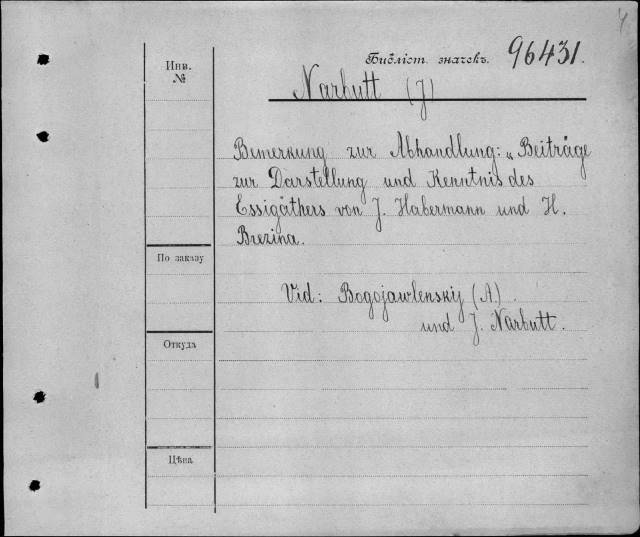 Библіот. значекъ. 96431.
Инв.
№
Narbutt (J)
Bemerkung zur Abhandlung: „Beiträge
zur Darstellung und Kenntnis des
Essigäthers von J. Habermann und H.
Brezina.
По заказу
Vid: Bogojawlenskij (A.)
und J. Narbutt.
Откуда
Цѣна